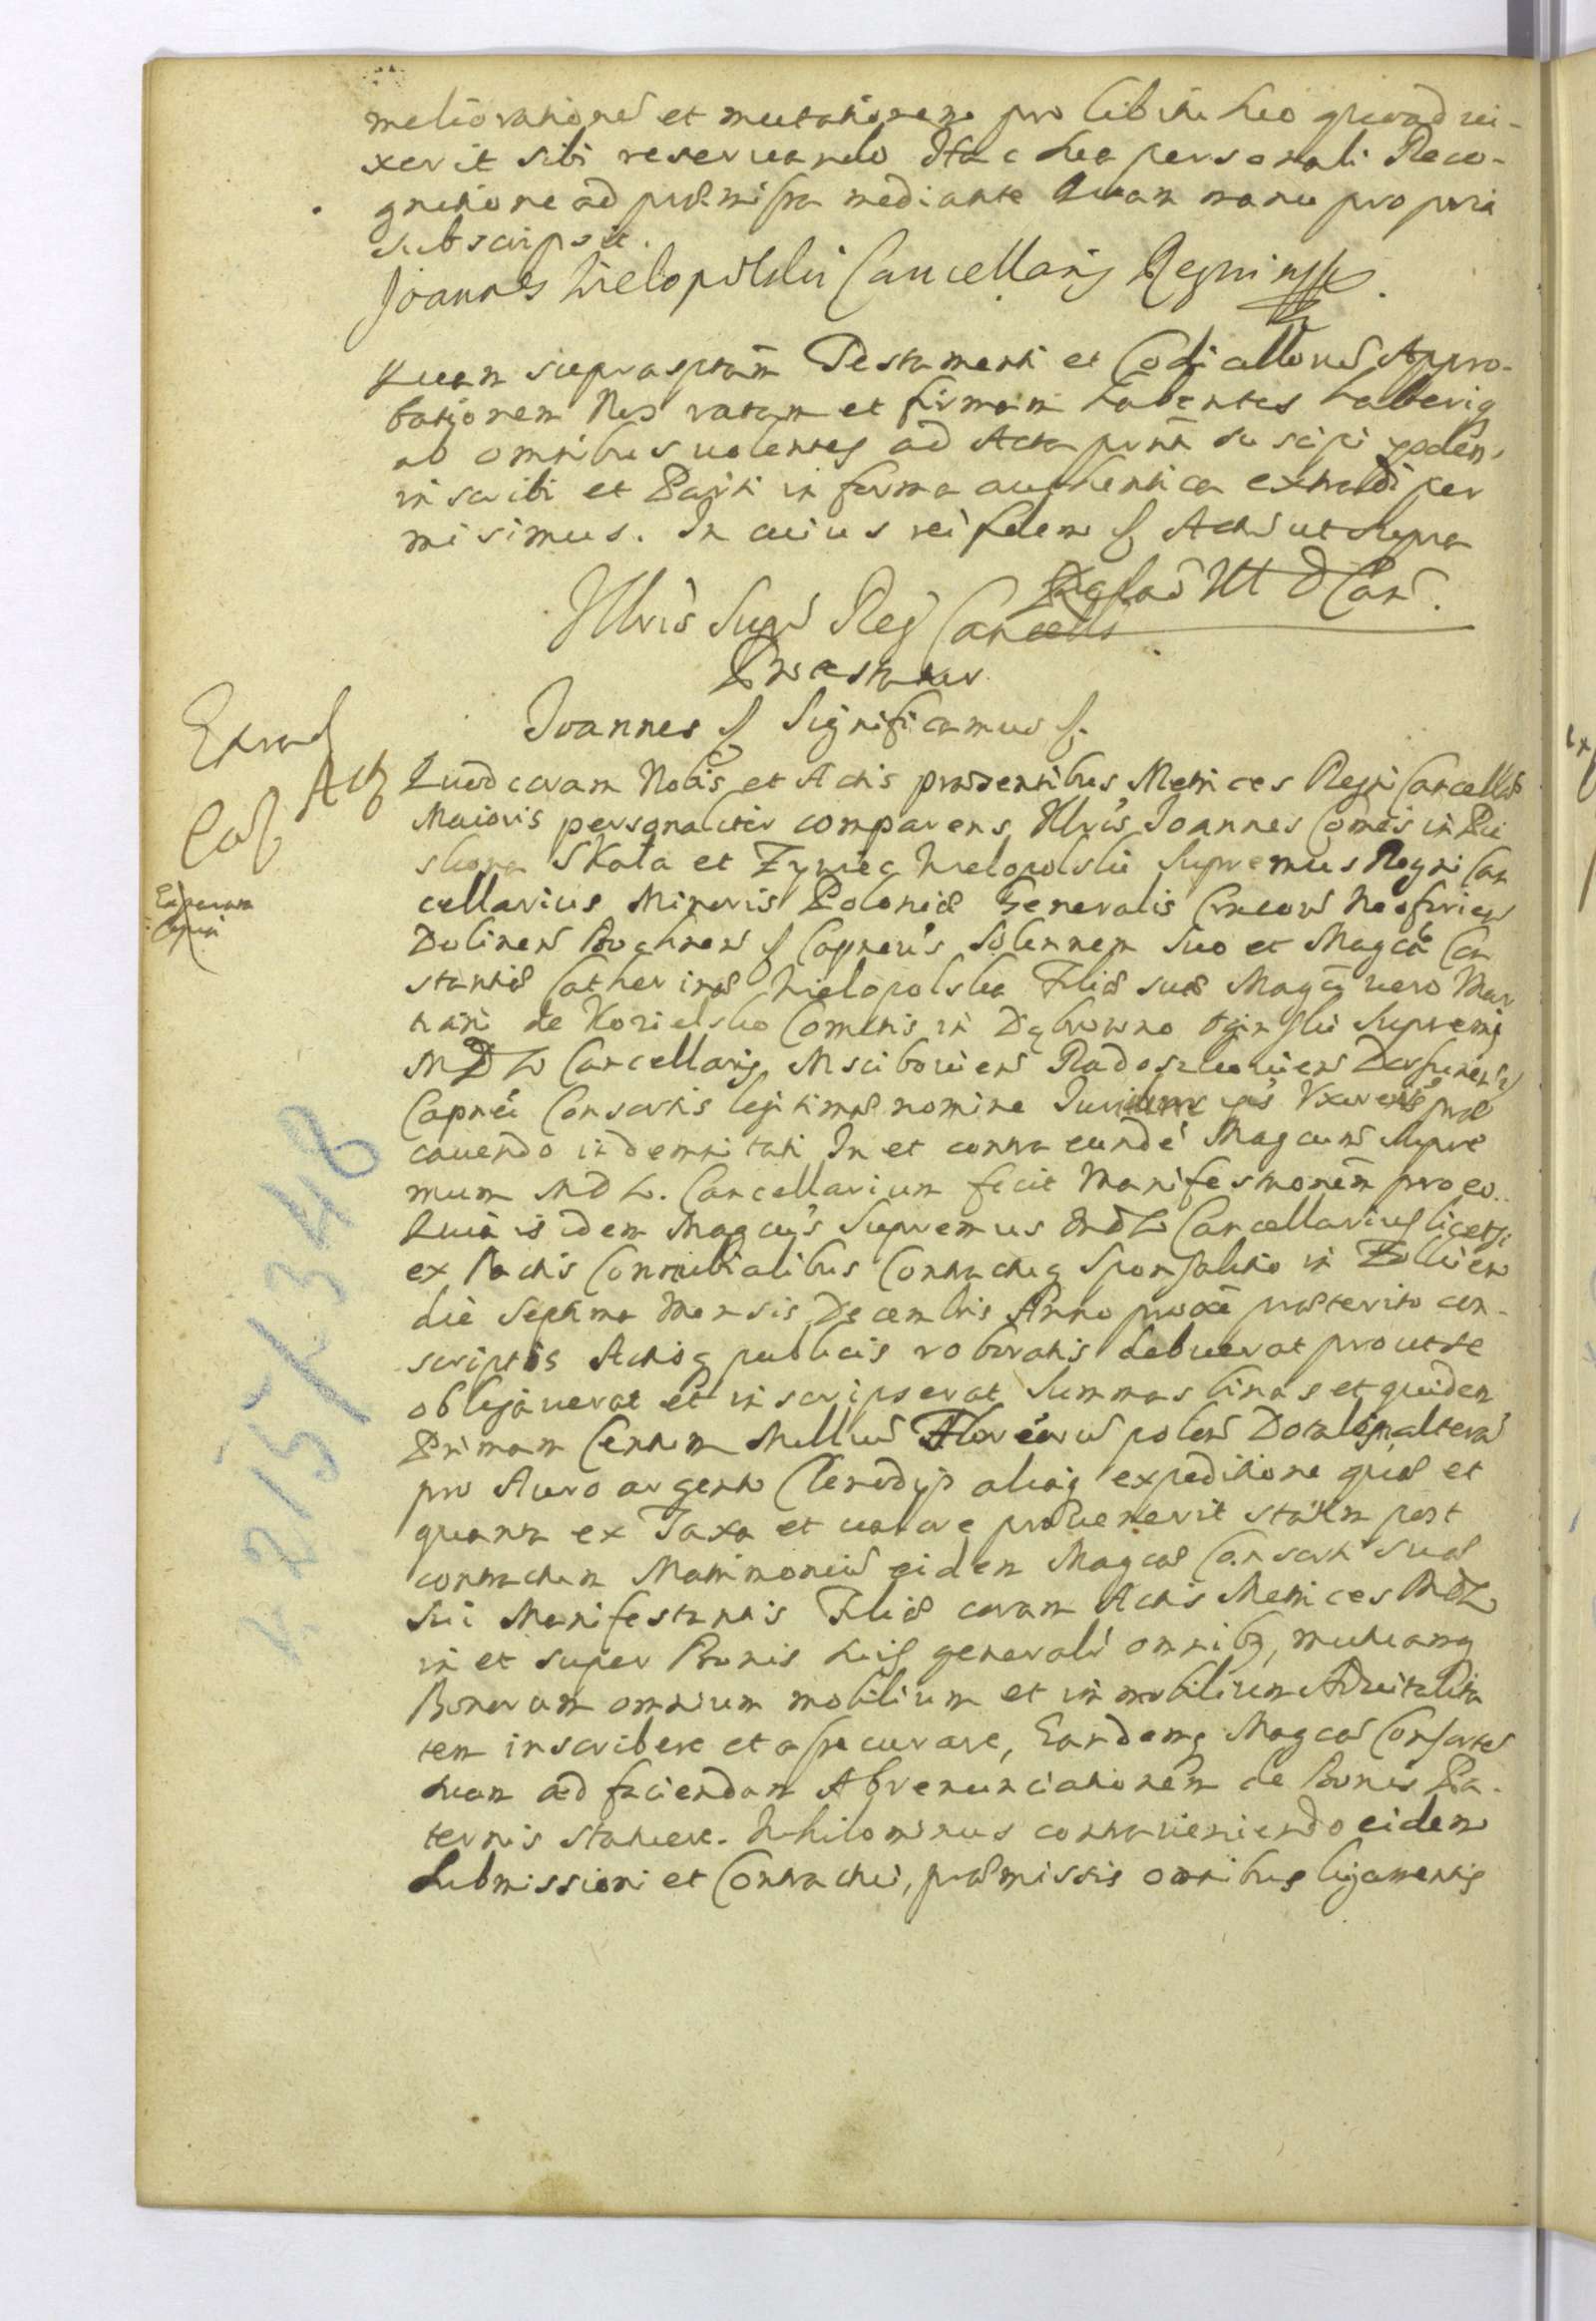 meliorationē et mutationem pro libitu suo quoad vi-
xerit sibi reservando Hac sua personali Reco-
gnitione ad præmissa mediante Quam manu propria
subscripsit.
Joannes Wielopolski Cancellarig Regni mpp.
Quam suprascptam Testamenti et Codicillorū Appro-
bationem Nos ratam et firmam habentes haberiq
ab omnibus volentes ad Acta pnntā suscipi eodēn
inscribi et Parti in forma authentica extradi per
misimus. In cuius rei fidem f Actū ut supra
Illris Supr Reg Cancells
Protestatur
Joannes f Significamus f.
Extrad
Act
Quod coram Nobis et Actis præsentibus Metrices Regni Cancellæ
Maioris personaliter comparens Illris Joannes Comes in Pie
skowa Skała et Zywiec Wielopolski Supremus Regni Can
cellarius Minoris Poloniæ Generalis Cracov Neoforien
Dolinen Bochnen f Capneus Solennem Suo et Magcæ Con
stantiæ Catherinæ Wielopolska Filiæ suæ Magci vero Mar
tiani de Kozielsko Comitis in Dąbrowno Oginski Supremi
MDL Cancellarij Mscibovien Radoszkovien Dorsunen f
Capnei Consortis legitimæ nomine Jurium eius Uxoreis præ
cavendo indemnitati In et contra eundē Magcum Supre
mum MDL. Cancellarium fecit Manifestationem pro eo..
Quia is idem Magcus Supremus MDL Cancellarius licet
ex Pactis Connubialibus Contractuq Sponsalitio in
die Septima Mensis Decembris Anno proxe præterito con-
scriptis Actisq publicis roboratis debuerat prout se
obligaverat et inscripserat Summas binas et quidem
Primam Centum Millium Florenorū polon Dotalem alterā
pro Auro argento Clenodijs aliaq expeditione quæ et
quanta ex Taxa et valore provenerit statim post
contractum Matrimoniū eidem Magcæ Consorti suæ
Sui Manifestantis Filiæ coram Actis Metrices MDL
in et super Bonis suis generalr omnibq, mutuamq
Bonorum omnium mobilium et immobilium Advitalita
tem inscribere et assecurare, Eandemq Magcā Consortē
suam ad faciendam Abrenunciationem de Bonis Pa-
ternis statuere. Nihilominus contraveniendo eidem
Submissioni et Contractui, præmissis omnibus ligamentis
2215/348